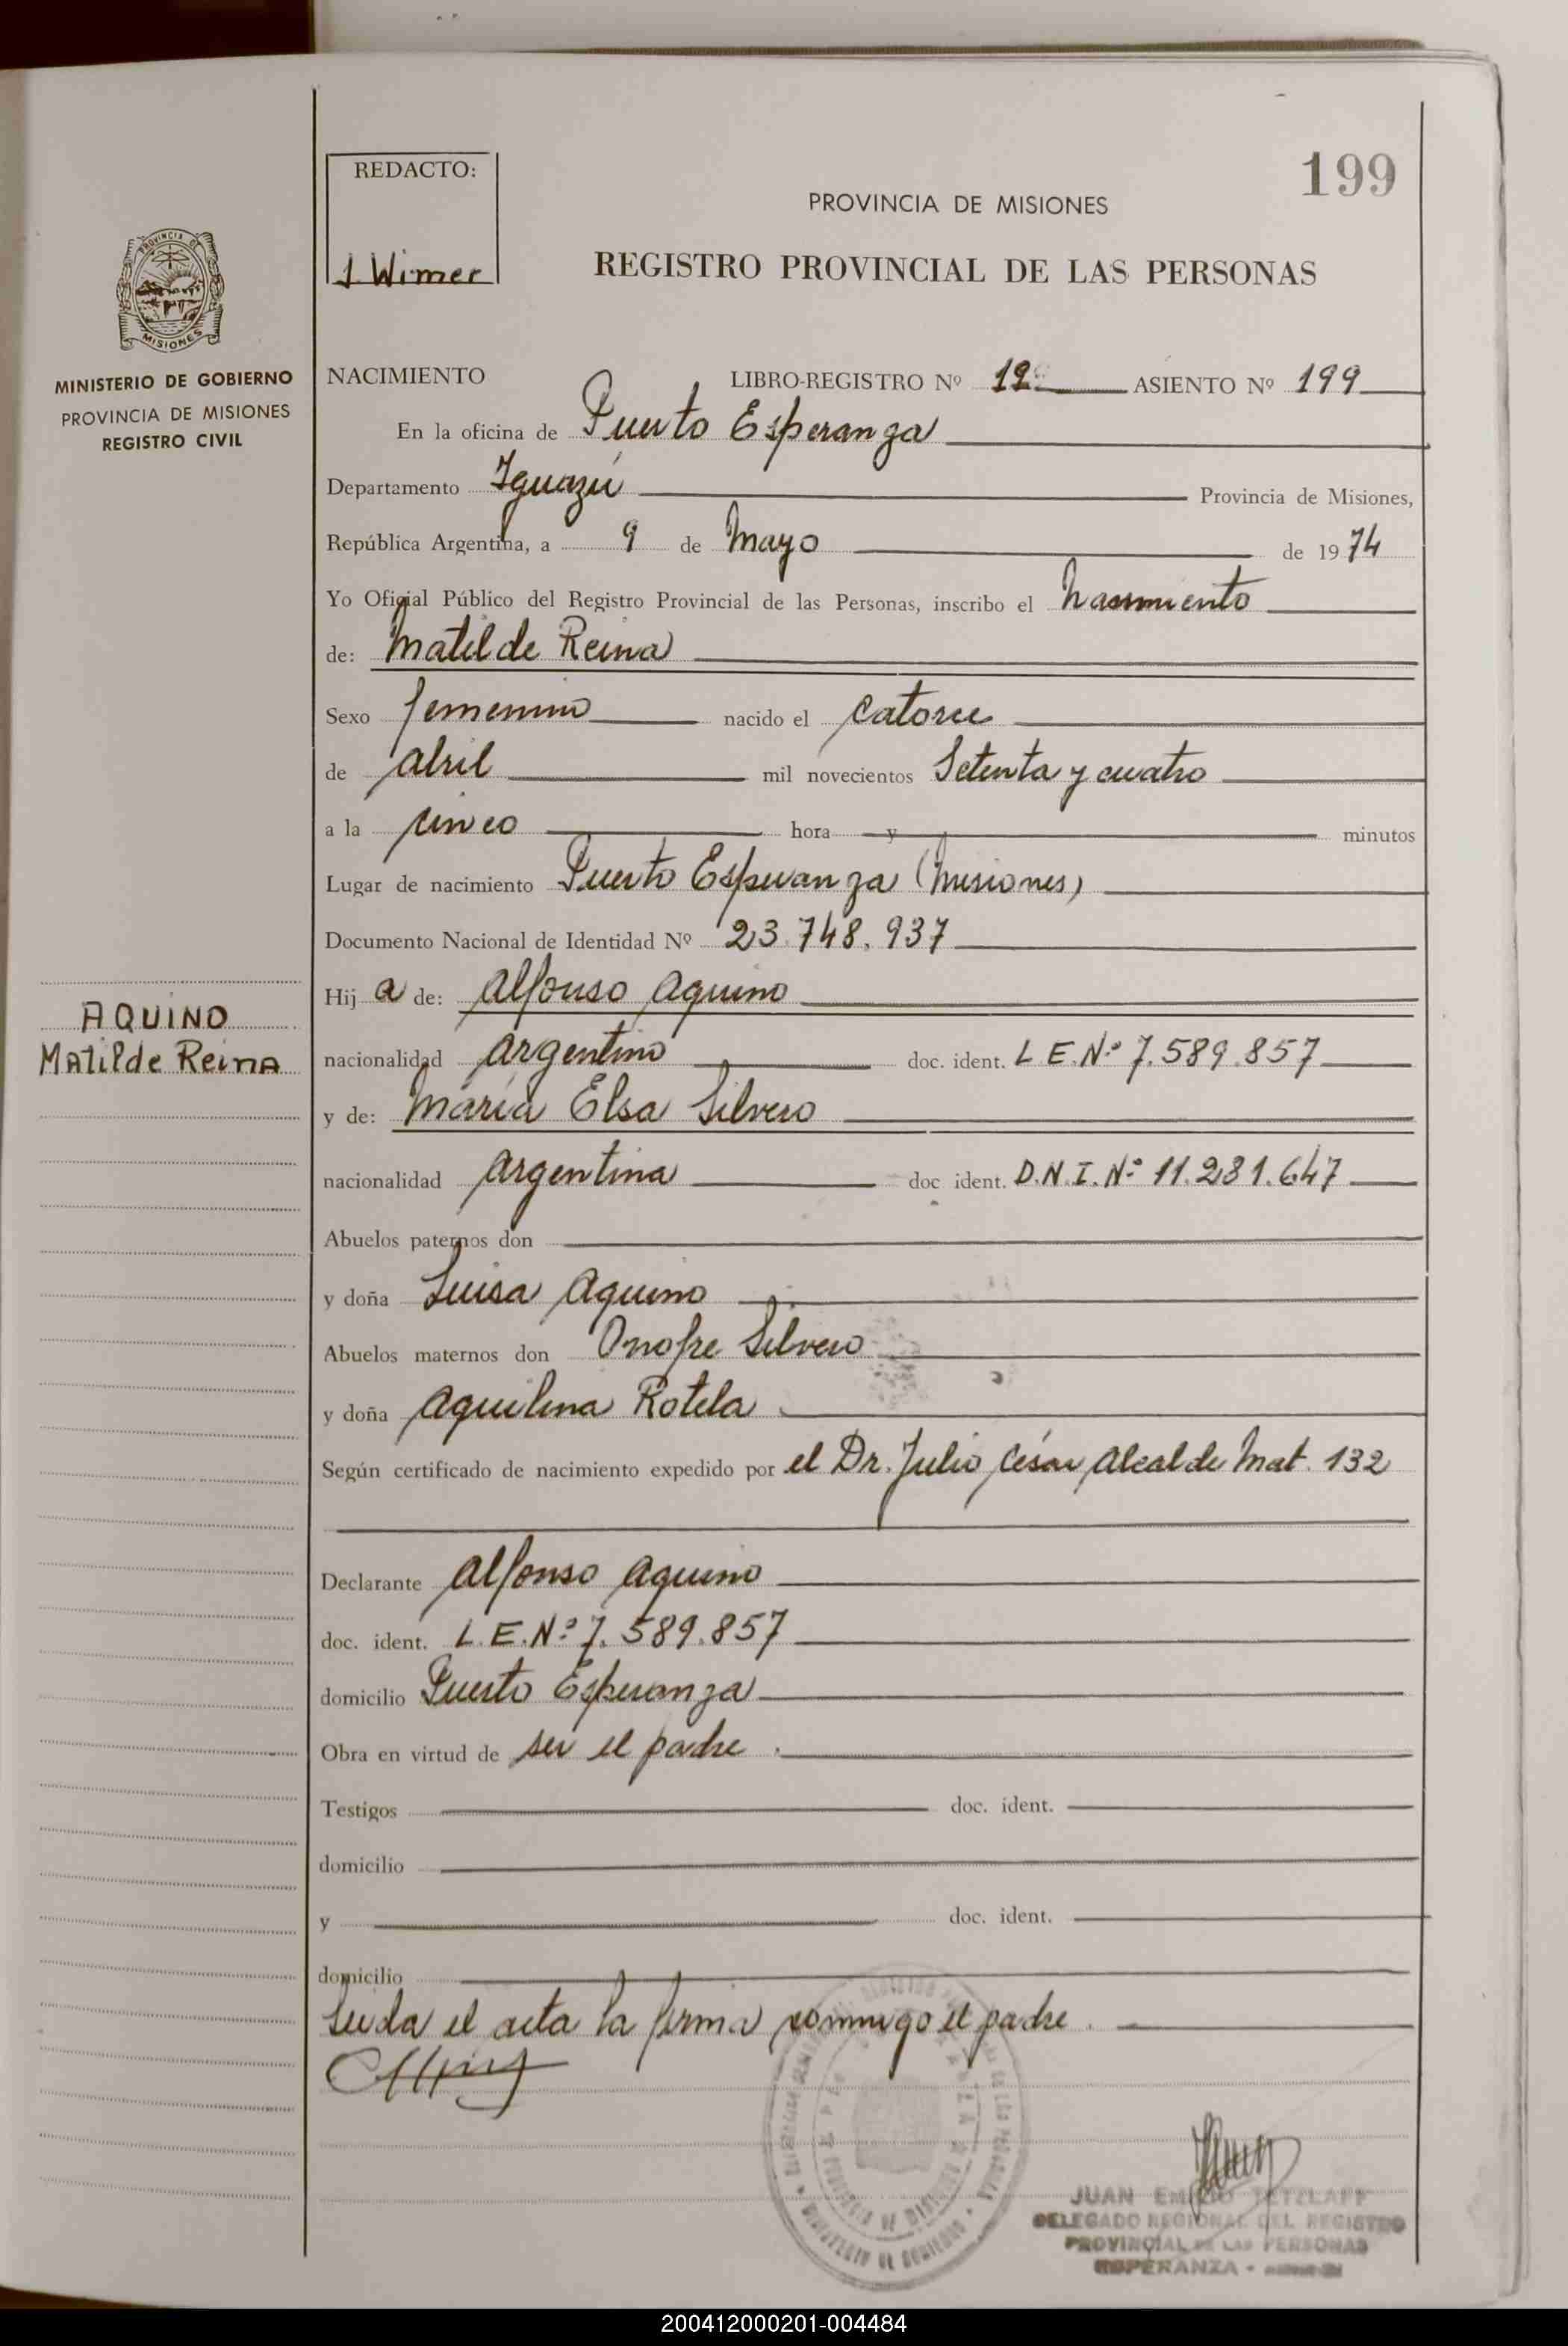 199
REDACTO:
J. Wimer
PROVINCIA DE MISIONES
REGISTRO PROVINCIAL DE LAS PERSONAS
PROVINCIA DE
MISIONES
MINISTERIO DE GOBIERNO
PROVINCIA DE MISIONES
REGISTRO CIVIL
NACIMIENTO LIBRO-REGISTRO Nº 12 ASIENTO Nº 199
En la oficina de Puerto Esperanza
Departamento Iguazú Provincia de Misiones,
República Argentina, a 9 de Mayo de 1974
Yo Oficial Público del Registro Provincial de las Personas, inscribo el Nacimiento
de: Matilde Reina
Sexo femenino nacido el catorce
de abril mil novecientos Setenta y cuatro
a la cinco hora y minutos
Lugar de nacimiento Puerto Esperanza (Misiones)
Documento Nacional de Identidad Nº 23.748.937
Hija de: Alfonso Aquino
AQUINO
Matilde Reina
nacionalidad Argentino doc. ident. L.E.Nº 7.589.857
y de: María Elsa Silvero
nacionalidad Argentina doc ident. D.N.I.Nº 11.281.647
Abuelos paternos don
y doña Luisa Aquino
Abuelos maternos don Onofre Silvero
y doña Aquilina Rotela
Según certificado de nacimiento expedido por el Dr. Julio César Alcalde Mat. 132
Declarante Alfonso Aquino
doc. ident. L.E.Nº 7.589.857
domicilio Puerto Esperanza
Obra en virtud de ser el padre.
Testigos doc. ident.
domicilio
y doc. ident.
domicilio
Leida el acta la firma conmigo el padre.
JUAN EMILIO TETZLAFF
DELEGADO REGIONAL DEL REGISTRO
PROVINCIAL DE LAS PERSONAS
ESPERANZA -
200412000201-004484